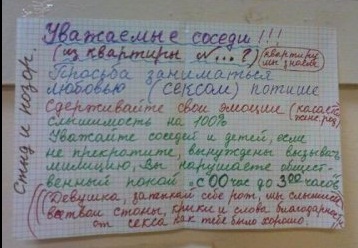 Стыд и позор.
Уважаемые соседи!!!
(из квартиры №...?) (квартиру мы знаем)
Просьба заниматься
любовью (сексом) потише
Сдерживайте свои эмоции (касается женс.
слышимость на 100%
Уважайте соседей и детей, если
не прекратите, вынуждены вызывать
милицию, Вы нарушаете общест-
венный покой с 00 час до 3 00 часов
(Девушка, заткни себе рот, мы слышим
все твои стоны, крики и слова благодарнос
от секса как тебе было хорошо.